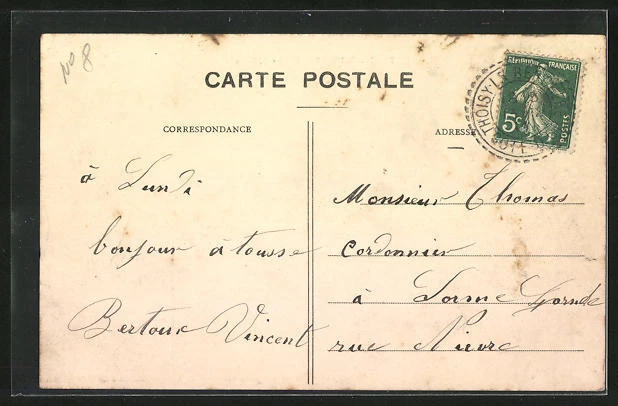 No 8
CARTE POSTALE
CORRESPONDANCE
ADRESSE
RÉPUBLIQUE FRANÇAISE
5c
POSTES
THOISY-LA
CÔTE
à Lundi
bonjour à tousse
Bertouc Vincent
Monsieur Thomas
Cordonnier
à Lorme Grande
rue Nievre